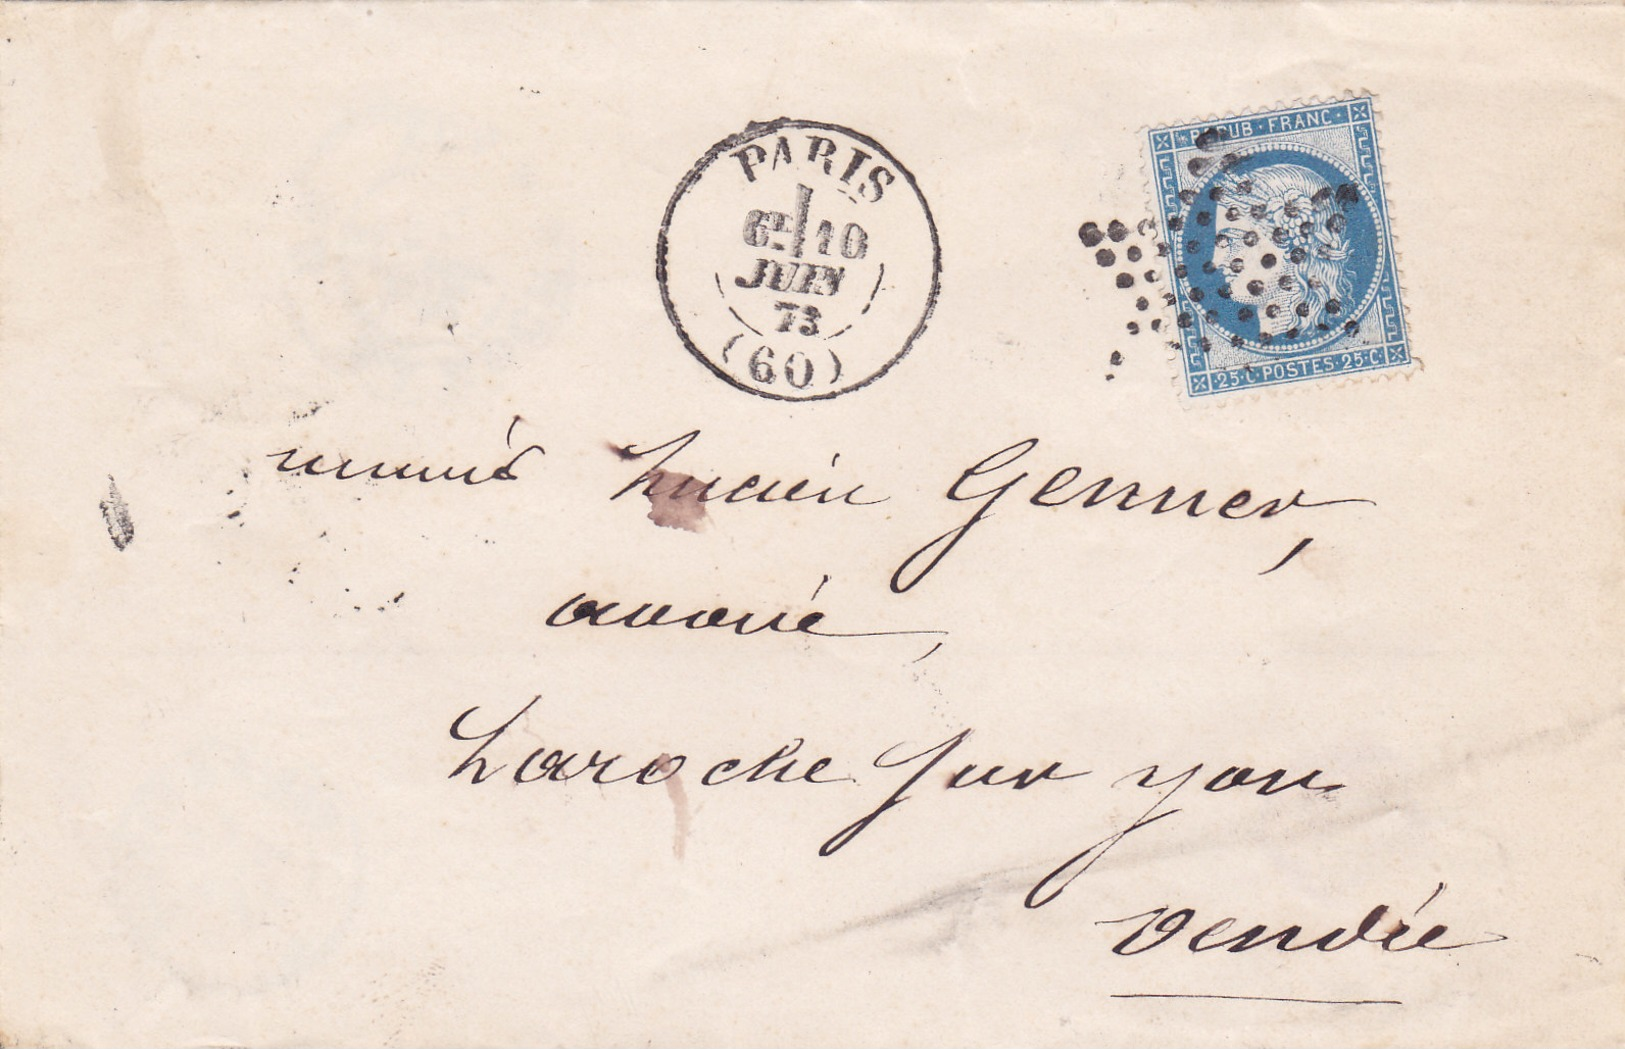 PARIS
REPUB · FRANC ·
6E 10
JUIN
73
(60)
· 25 · C · POSTES · 25 · C ·
Lucien Genner,
avoué,
Laroche sur yon
Vendée